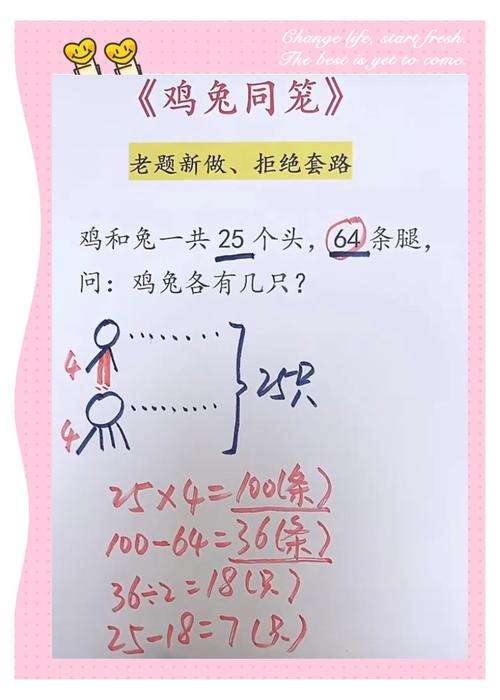 Change life, start fresh.
The best is yet to come.
《鸡兔同笼》
老题新做、拒绝套路
鸡和兔一共 25 个头，64 条腿，
问：鸡兔各有几只？
4
4
25只
25×4=100(条)
100-64=36(条)
36÷2=18(只)
25-18=7(只)